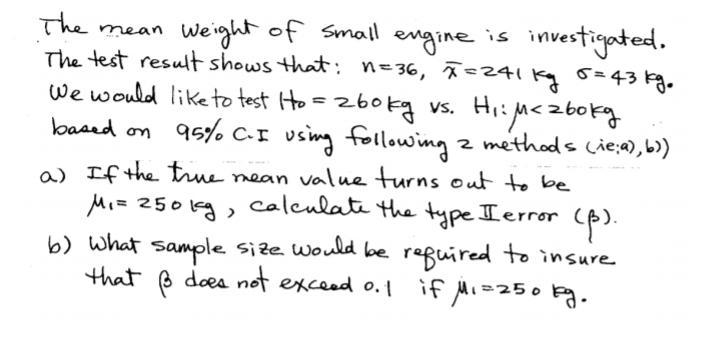 The mean weight of small engine is investigated.
The test result shows that: n=36, x̄=241 kg σ=43 kg.
We would like to test Ho = 260kg vs. H₁: μ<260kg
based on 95% C.I using following 2 methods (ie;a),b))
a) If the true mean value turns out to be
μ₁= 250 kg, calculate the type II error (β).
b) What sample size would be required to insure
that β does not exceed 0.1 if μ₁=250 kg.